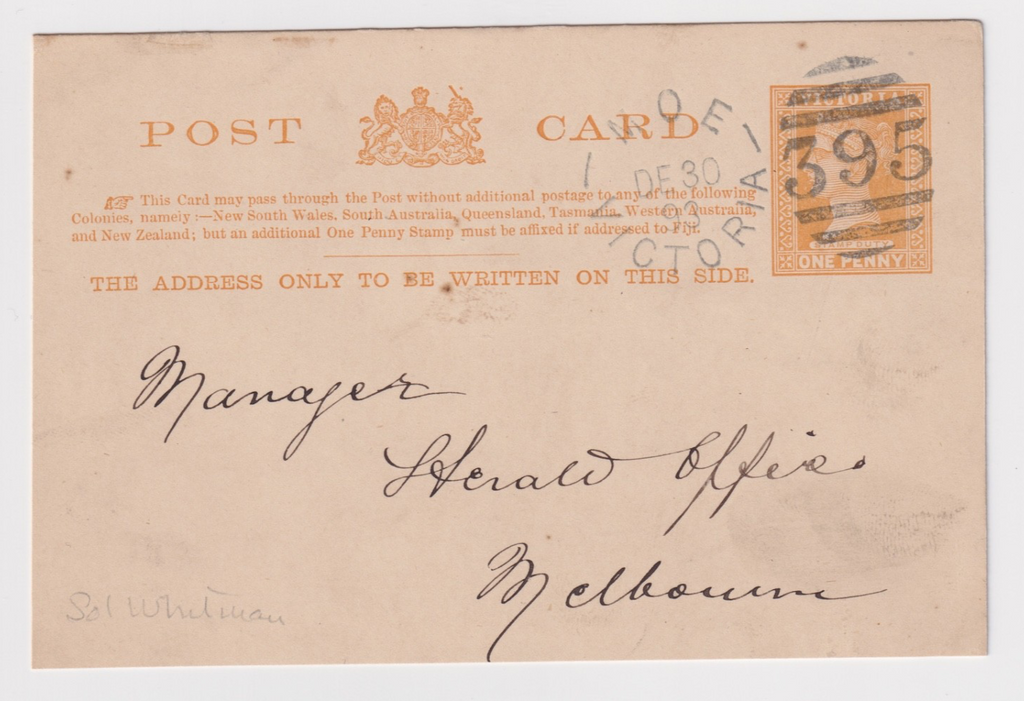 POST CARD
This Card may pass through the Post without additional postage to any of the following
Colonies, namely:—New South Wales, South Australia, Queensland, Tasmania, Western Australia,
and New Zealand; but an additional One Penny Stamp must be affixed if addressed to Fiji.
THE ADDRESS ONLY TO BE WRITTEN ON THIS SIDE.
MOE
DE 30
93
VICTORIA
VICTORIA
395
STAMP DUTY
ONE PENNY
Manager
Herald Office
Melbourne
Sol Whitman